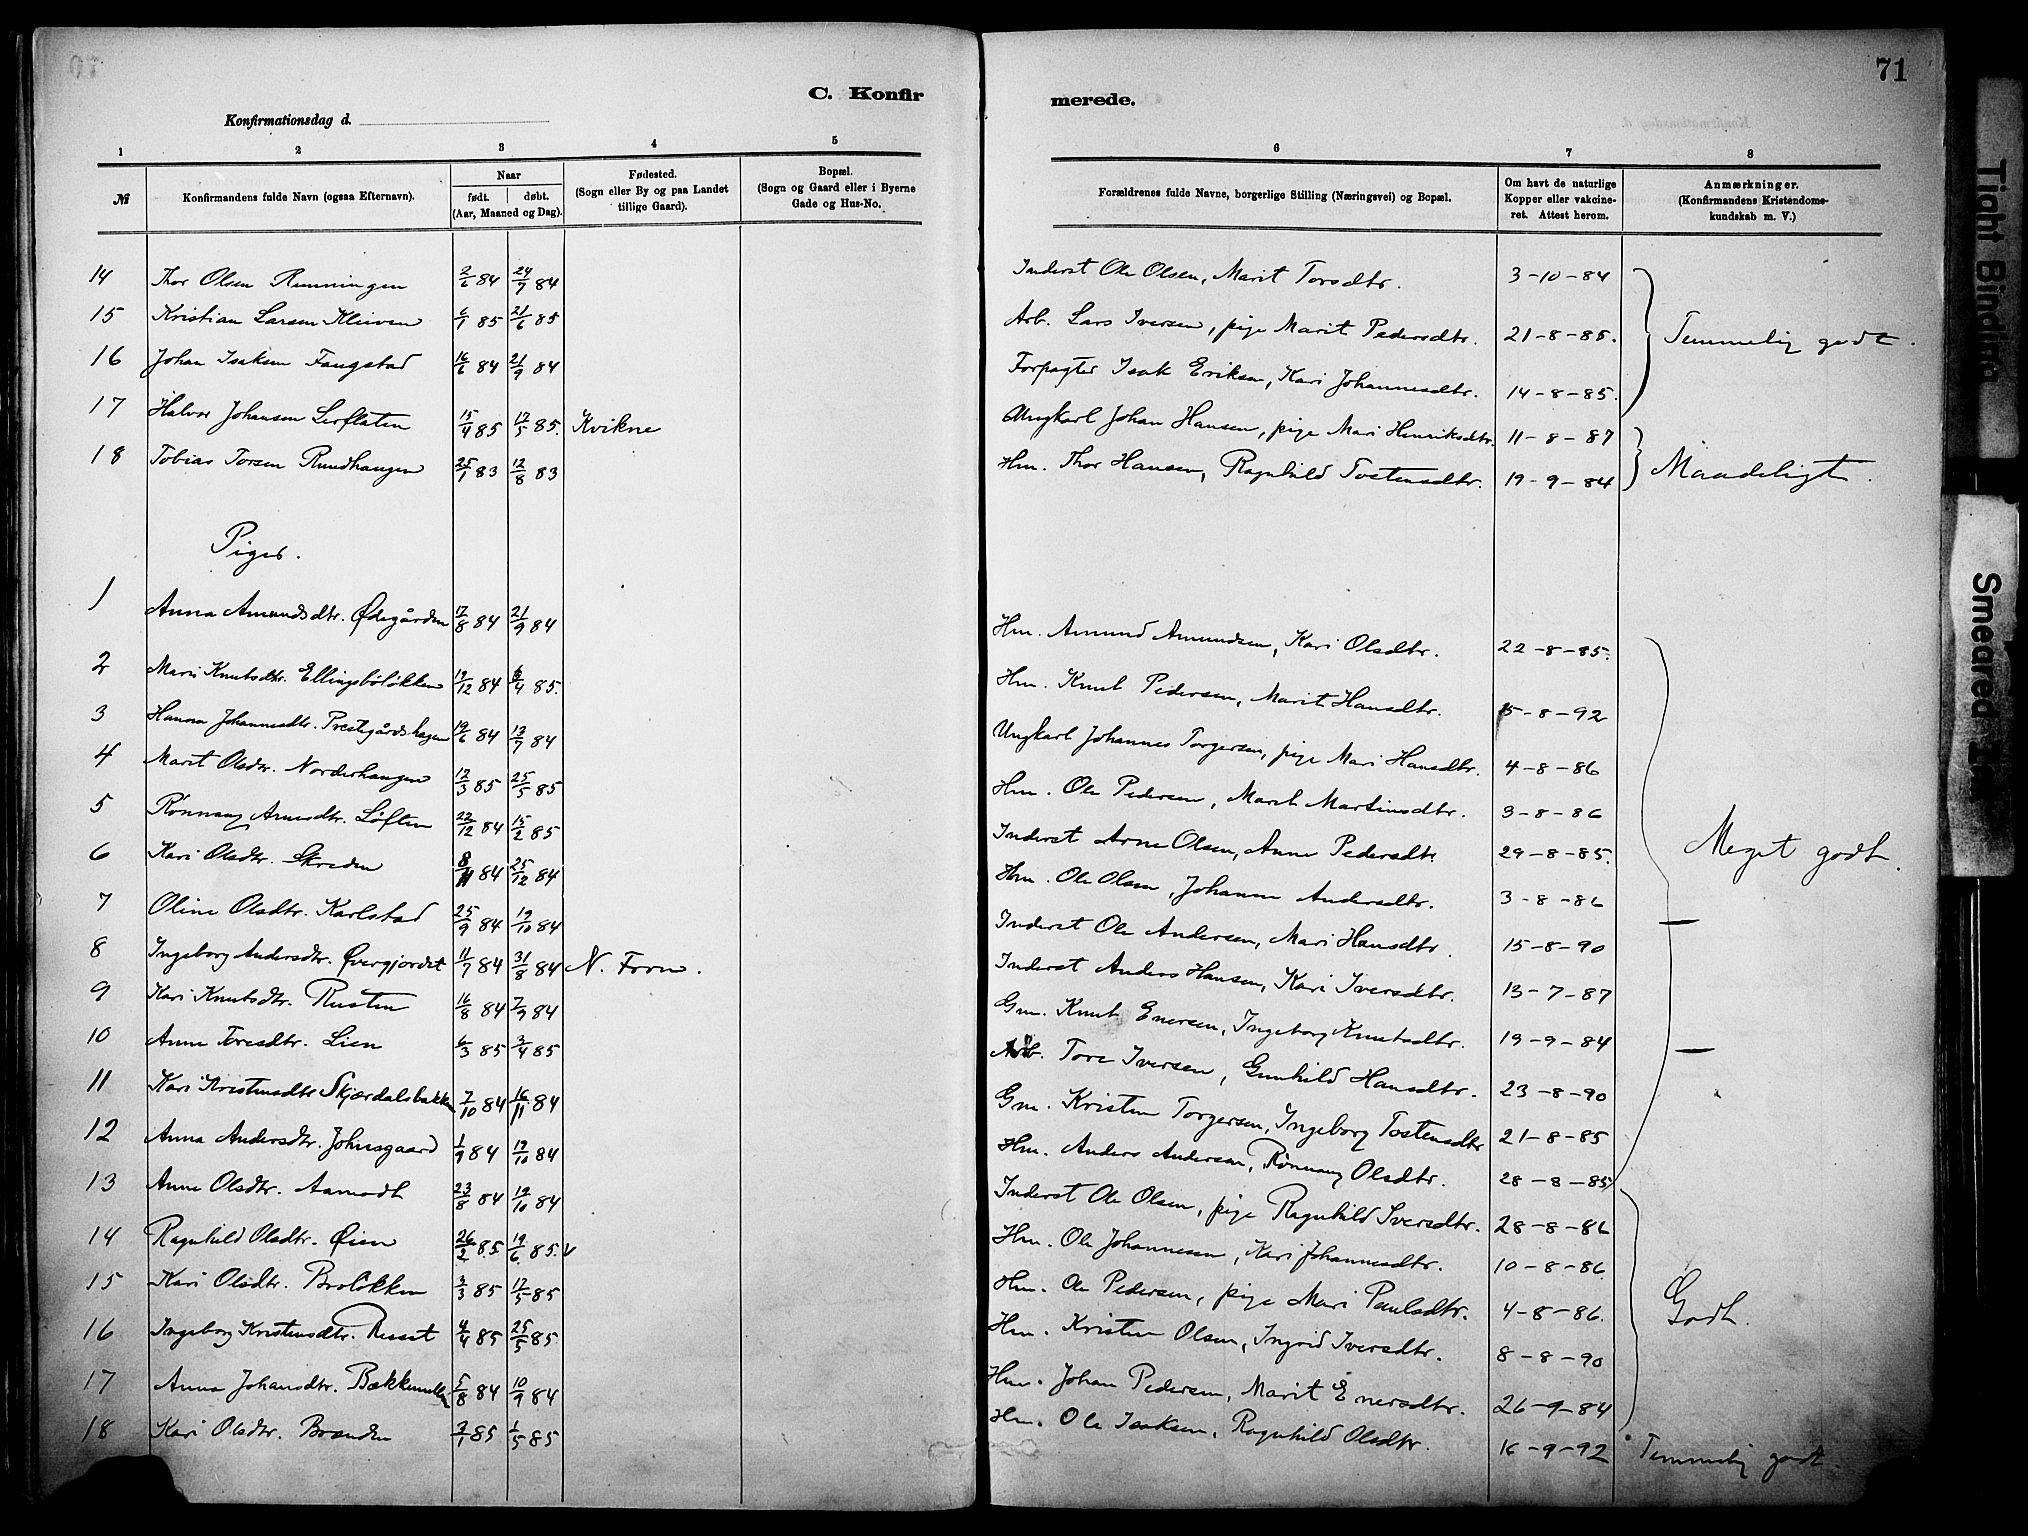 70
71
C. Konfirmerede.
Konfirmationsdag d.
1 2 3 4 5 6 7 8
№ Konfirmandens fulde Navn (ogsaa Efternavn). Naar født. døbt. (Aar, Maaned og Dag). Fødested. (Sogn eller By og paa Landet tillige Gaard). Bopæl. (Sogn og Gaard eller i Byerne Gade og Hus-No. Forældrenes fulde Navne, borgerlige Stilling (Næringsvei) og Bopæl. Om havt de naturlige Kopper eller vakcineret. Attest herom. Anmærkninger. (Konfirmandens Kristendomskundskab m. V.)
14 Thor Olsen Runningen 2/6 84 24/7 84 Inderst Ole Olsen, Marit Torsdtr. 3-10-84
15 Kristian Larsen Kleiven 6/1 85 21/6 85 Arb. Lars Iversen, pige Marit Pedersdtr. 21-8-85. Temmelig godt.
16 Johan Isaksen Fangstad 16/6 84 21/9 84 Forpagter Isak Eriksen, Kari Johannesdtr. 14-8-85.
17 Halvor Johansen Lerflaten 15/4 85 17/5 85. Kvikne Ungkarl Johan Hansen, pige Mari Henriksdtr. 11-8-87
18 Tobias Torsen Rundhaugen 25/1 83 12/8 83 Hm. Thor Hansen, Ragnhild Tostensdtr. 19-9-84 Maadeligt.
Piger.
1 Anna Amundsdtr. Ødegården 17/8 84 21/9 84 Hm. Amund Amundsen, Kari Olsdtr. 22-8-85.
2 Mari Knutsdtr. Ellingsbøløkken 19/12 84 6/4 85. Hm. Knut Pedersen, Marit Hansdtr. 5-8-92
3 Hanna Johannesdtr. Prestgårdshagen 19/6 84 13/7 84 Ungkarl Johannes Torgersen, pige Mari Hansdtr. 4-8-86
4 Marit Olsdtr. Norderhaugen 12/3 85 25/5 85 Hm. Ole Pedersen, Marit Martinsdtr. 3-8-86
5 Rønnaug Arnesdtr. Løften 22/12 84 15/2 85 Inderst Arne Olsen, Anne Pedersdtr 29-8-85. Meget godt.
6 Kari Olsdtr. Skreden 8/11 84 25/12 84 Hm. Ole Olsen, Johanne Andersdtr. 3-8-86
7 Oline Olsdtr. Karlstad 25/9 84 19/10 84 Inderst Ole Andersen, Mari Hansdtr. 15-8-90
8 Ingeborg Andersdtr. Øvergjordet 11/7 84 31/8 84 N. Fron. Inderst Anders Hansen, Kari Iversdtr. 13-7-87
9 Kari Knutsdtr. Rusten 16/8 84 7/9 84 Gm. Knut Enersen, Ingeborg Knutsdtr. 19-9-84
10 Anne Toresdtr. Lien 6/3 85 3/4 85 Arb. Tore Iversen, Gunhild Hansdtr. 23-8-90
11 Kari Kristensdtr Skjærdalsbakken 7/10 84 16/11 84 Gm. Kristen Torgersen, Ingeborg Tostensdtr 21-8-85
12 Anna Andersdtr. Johnsgaard 1/9 84 12/10 84 Hm. Anders Andersen, Rønnaug Olsdtr. 28-8-85
13 Anne Olsdtr. Aamodt 23/8 84 19/10 84 Inderst Ole Olsen, pige Ragnhild Iversdtr. 28-8-86
14 Ragnhild Olsdtr. Øien 26/2 85. 19/6 85. Hm. Ole Johannesen, Kari Johannesdtr. 10-8-86.
15 Kari Olsdtr. Broløkken 3/3 85 17/5 85 Hm. Ole Pedersen, pige Mari Paulsdtr. 4-8-86. Godt.
16 Ingeborg Kristensdtr. Russet 4/4 85 25/5 85 Hm. Kristen Olsen, Ingrid Iversdtr. 8-8-90
17 Anna Johansdtr. Bækkemellem 5/8 84 10/9 84 Hm. Johan Pedersen, Marit Enersdtr. 26-9-84
18 Kari Olsdtr. Brenden 2/1 85 1/5 85 Hm. Ole Isaksen, Ragnhild Olsdtr. 16-9-92 Temmelig godt.
Tight Binding
Smeared Ink